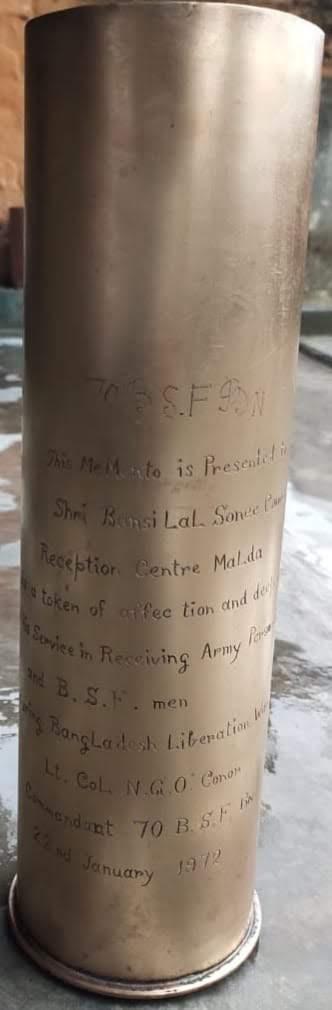 70 B.S.F BN
This MeMento is Presented
Shri Bansi LaL Sonee
Reception Centre MaLda
a token of affec tion and
Service in Receiving Army
and B.S.F. men
BangLadesh Liberation
Lt. CoL. N.G.O' Conor
Commandant 70 B.S.F BN
22nd January 1972